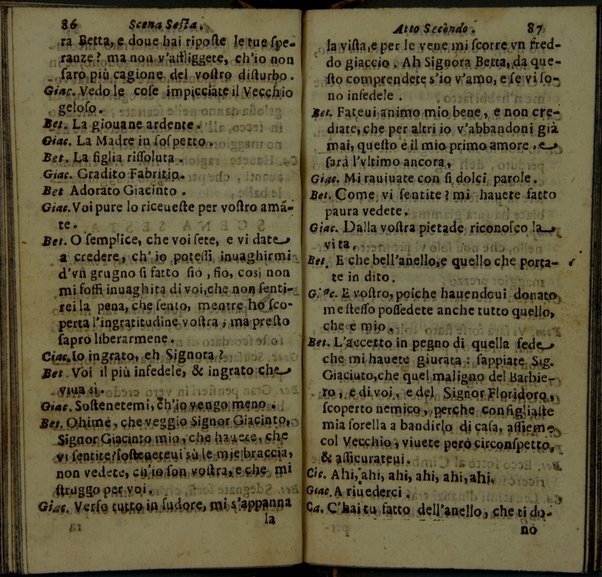 86 Scena Sesta.
ra Betta, e doue hai riposte le tue spe-
ranze? ma non v'affliggete, ch'io non
sarò più cagione del vostro disturbo.
Giac. Vedo le cose impicciate il Vecchio
geloso.
Bet. La giouane ardente.
Giac. La Madre in sospetto.
Bet. La figlia rissoluta.
Giac. Gradito Fabritio.
Bet Adorato Giacinto.
Giac. Voi pure lo riceueste per vostro amã-
te.
Bet. O semplice, che voi sete, e vi date
a credere, ch'io potessi inuaghirmi
d'vn grugno sì fatto sió, sió, così non
mi fossi inuaghita di voi, che non senti-
rei la pena, che sento, mentre hò sco-
perta l'ingratitudine vostra; ma presto
saprò liberarmene.
Ciac. Io ingrato, eh Signora?
Bet. Voi il più infedele, & ingrato che
viua sì.
Giac. Sostenetemi, ch'io vengo meno.
Bet. Ohimè, che veggio Signor Giacinto,
Signor Giacinto mio, che hauete, che
vi sentite? sosteneteui sù le mie braccia,
non vedete, ch'io son vostra, e che mi
struggo per voi.
Giac. Verso tutto in sudore, mi s'appanna
la
Atto Secondo. 87
la vista, e per le vene mi scorre vn fred-
do giaccio. Ah Signora Betta, da que-
sto comprendete s'io v'amo, e se vi so-
no infedele.
Bet. Fateui animo mio bene, e non cre-
diate, che per altri io v'abbandoni già
mai, questo è il mio primo amore, e
sarà l'vltimo ancora,
Giac. Mi rauiuate con sì dolci parole.
Bet. Come vi sentite? mi hauete fatto
paura vedete.
Giac. Dalla vostra pietade riconosco la
vita,
Bet. E che bell'anello, e quello che porta-
te in dito.
Giac. E vostro, poiche hauendoui donato
me stesso possedete anche tutto quello,
che è mio.
Bet. L'accetto in pegno di quella fede
che mi hauete giurata: sappiate Sig.
Giaciuto, che quel maligno del Barbie-
ro, è di voi, e del Signor Floridoro,
scoperto nemico, perche consigliaste
mia sorella a bandirlo di casa, assieme
col Vecchio, viuete però circonspetto,
& assicurateui.
Cic. Ahi, ahi, ahi, ahi, ahi.
Giac. A riuederci.
Ca. C'hai tu fatto dell'anello, che ti do-
nò